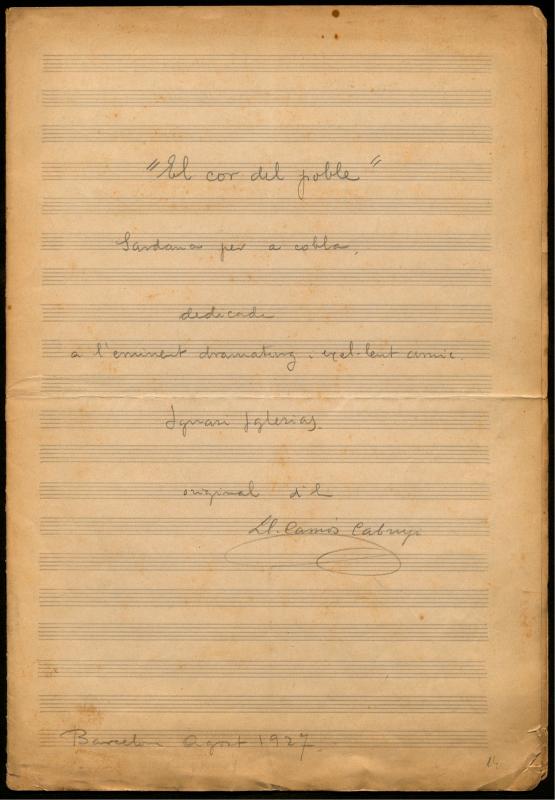 "El cor del poble"
Sardana per a cobla,
dedicada
a l'eminent dramaturg i excel·lent amic.
Ignasi Iglesias.
original d'l
Ll. Camós Cabruja
Barcelona Agost 1927.
14